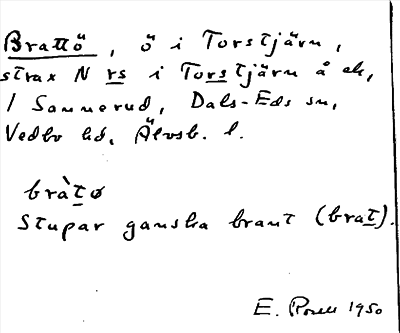 Brattö, ö i Torstjärn,
strax N rs i Torstjärn å ek,
/ Sannerud, Dals-Eds sn,
Vedbo hd, Älvsb. l.
bràtø
Stupar ganska brant (brat).
E. Rosell 1950